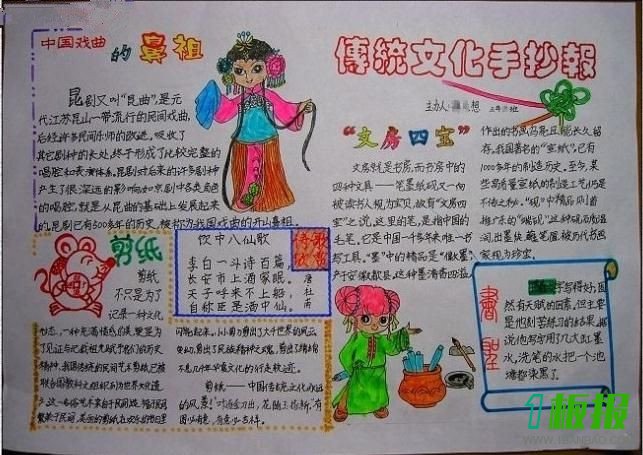 中国戏曲
的鼻祖
昆剧又叫“昆曲”,是元
代江苏昆山一带流行的民间戏曲,
后经许多民间乐师的改进,吸收了
其它剧种的长处,终于形成了比较完整的
唱腔和表演体系。昆剧对后来的许多剧种
产生了很深远的影响,如京剧中各类角色
的唱腔,就是从昆曲的基础上发展起来
的,昆剧已有500多年的历史,被称为我国戏曲的开山鼻祖。
傳統文化手抄報
主办人:
想
班
“文房四宝”
文房就是书房,而书房中的
四种文具——笔墨纸砚又一向
被读书人视为珍宝,故有“文房四
宝”之说。这里的笔,是指中国的
毛笔。它是中国一千多年来唯一书
写工具。“墨”中的精品是“徽墨”,
产于安徽歙县,这种墨清香四溢,
作出的书画乌亮且能长久留
存。我国著名的“宣纸”,已有
1000多年的制造历史。至今,某
些高质量宣纸的制造工艺仍是
不传之秘。“砚”中精品则首
推广东的“端砚”这种砚石质温
润,出墨快,蘸笔滋,被历代书画
家视为珍宝。
剪纸
剪纸
不只是为了
记录一种文化
饮中八仙歌
诗歌欣赏
李白一斗诗百篇,
长安市上酒家眠。
天子呼来不上船,
自称臣是酒中仙。
唐
杜甫
剪纸——中国传统文化永远
的风景!
書聖
字写得好,固
然有天赋的因素,但主要
是他刻苦练习的结果。据
说他写字用了几大缸墨
水,洗笔的水把一个池
塘都染黑了。
1板报
WWW.1BANBAO.COM